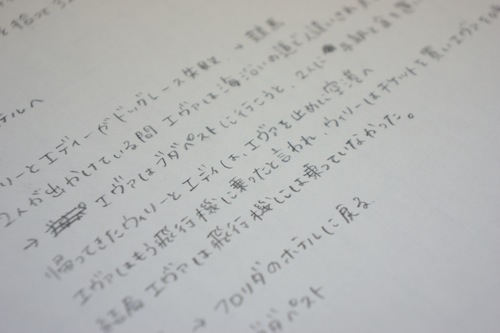 テルへ
リーとエディーがドッグレース失敗 →
2人が出かけている間 エヴァは海沿いの道で
→ エヴァはブダペストに行こうと、
帰ってきたウィリーとエディは、エヴァを止めに空港へ
エヴァはもう飛行機に乗ったと言われ、ウィリーはチケットを買いエヴァを
結局エヴァは飛行機には乗っていなかった。
→ フロリダのホテルに戻る
ダペスト